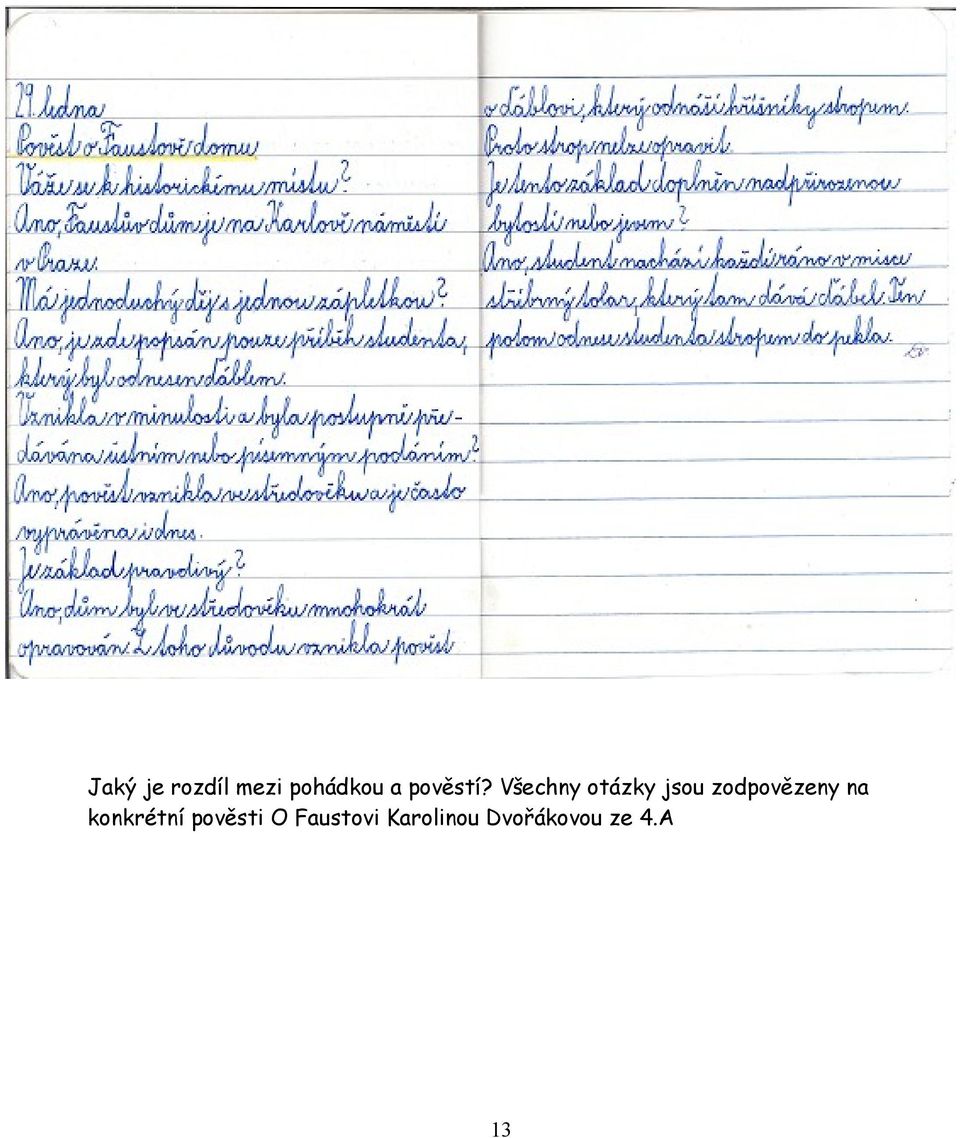 29. ledna
Pověst o Faustově domu
Váže se k historickému místu?
Ano, Faustův dům je na Karlově náměstí
v Praze.
Má jednoduchý děj s jednou zápletkou?
Ano, je zde popsán pouze příběh studenta,
který byl odnesen ďáblem.
Vznikla v minulosti a byla postupně pře-
dávána ústním nebo písemným podáním?
Ano, pověst vznikla ve středověku a je často
vyprávěna i dnes.
Je základ pravdivý?
Ano, dům byl ve středověku mnohokrát
opravován. Z toho důvodu vznikla pověst
o ďáblovi, který odnáší hříšníky stropem.
Proto strop nelze opravit.
Je tento základ doplněn nadpřirozenou
bytostí nebo jevem?
Ano, student nachází každí ráno v misce
stříbrný tolar, který tam dává ďábel. Ten
potom odnese studenta stropem do pekla.
Jaký je rozdíl mezi pohádkou a pověstí? Všechny otázky jsou zodpovězeny na
konkrétní pověsti O Faustovi Karolinou Dvořákovou ze 4.A
13